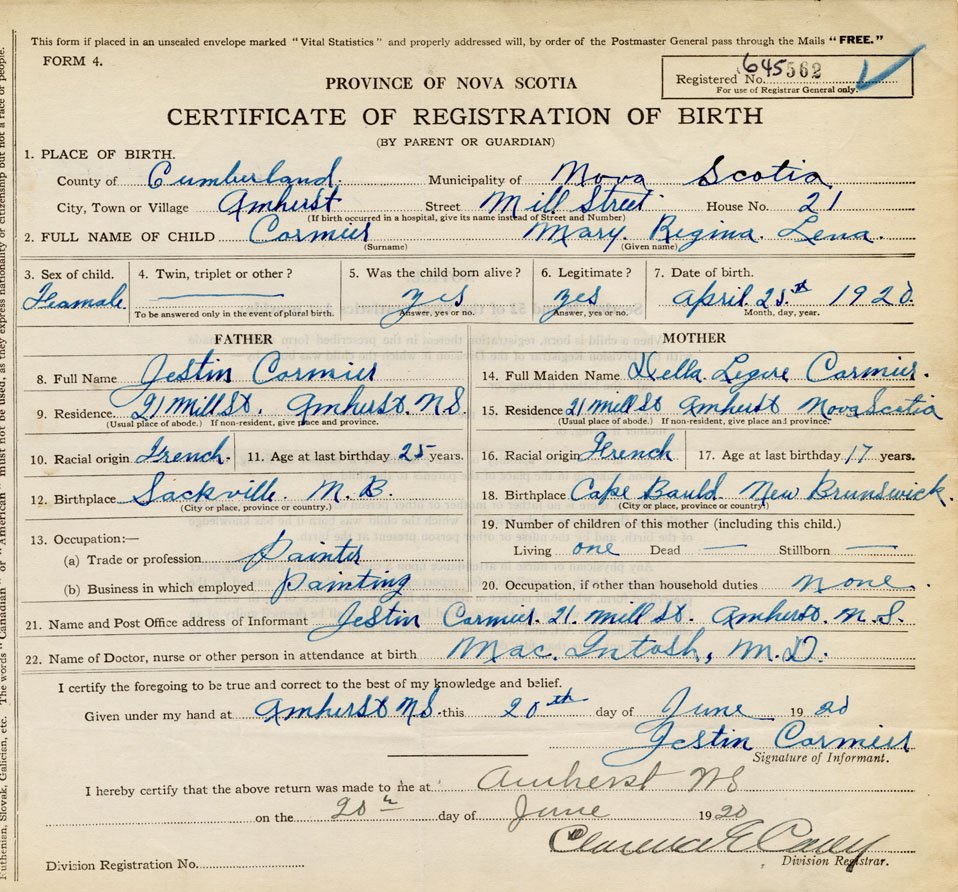 This form if placed in an unsealed envelope marked "Vital Statistics" and properly addressed will, by order of the Postmaster General pass through the Mails "FREE."
FORM 4.
Registered No. 645562
For use of Registrar General only.
PROVINCE OF NOVA SCOTIA
CERTIFICATE OF REGISTRATION OF BIRTH
(BY PARENT OR GUARDIAN)
1. PLACE OF BIRTH.
County of Cumberland. Municipality of Nova Scotia
City, Town or Village Amherst Street Mill Street. House No. 21
(If birth occurred in a hospital, give its name instead of Street and Number)
2. FULL NAME OF CHILD Cormier Mary. Regina. Lena.
(Surname) (Given name)
3. Sex of child. 4. Twin, triplet or other? 5. Was the child born alive? 6. Legitimate? 7. Date of birth.
Feamale. yes yes April. 25.th 1920.
To be answered only in the event of plural birth. Answer, yes or no. Answer, yes or no. Month, day, year.
FATHER MOTHER
8. Full Name Jestin Cormier 14. Full Maiden Name Della Legere Cormier.
9. Residence 21 Mill St. Amherst. N.S. 15. Residence 21 Mill St Amherst Nova Scotia
(Usual place of abode.) If non-resident, give place and province. (Usual place of abode.) If non-resident, give place and province.
10. Racial origin French. 11. Age at last birthday 25 years. 16. Racial origin French 17. Age at last birthday 17 years.
12. Birthplace Sackville. N.B. 18. Birthplace Cape Bauld. New Brunswick.
(City or place, province or country.) (City or place, province or country.)
13. Occupation:— 19. Number of children of this mother (including this child.)
(a) Trade or profession Painter Living one Dead — Stillborn —
(b) Business in which employed Painting 20. Occupation, if other than household duties None.
21. Name and Post Office address of Informant Jestin Cormier. 21. Mill St. Amherst. N.S.
22. Name of Doctor, nurse or other person in attendance at birth Mac. Intosh, M.D.
I certify the foregoing to be true and correct to the best of my knowledge and belief.
Given under my hand at Amherst N.S. this 20th day of June 1920
Jestin Cormier
Signature of Informant.
I hereby certify that the above return was made to me at Amherst NS
on the 20th day of June 1920
Clarence E
Division Registrar.
Division Registration No.
The words "Canadian" or "American" must not be used, as they express nationality or citizenship but not a race or people.
Ruthenian, Slovak, Galician, etc.